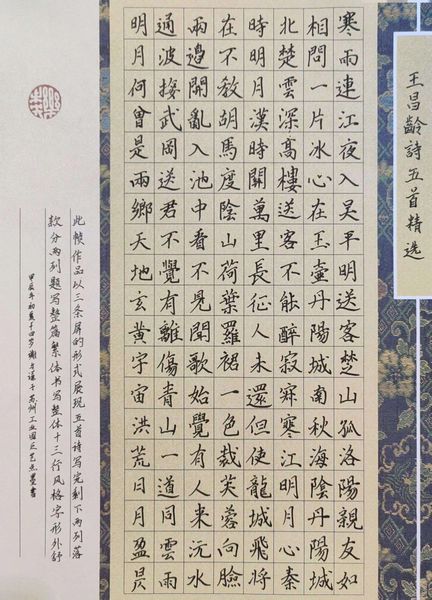 王昌齡詩五首精选
寒雨連江夜入吴平明送客楚山孤洛陽親友如
相問一片冰心在玉壺丹陽城南秋海陰丹陽城
北楚雲深高樓送客不能醉寂寂寒江明月心秦
時明月漢時關萬里長征人未還但使龍城飛將
在不教胡馬度陰山荷葉羅裙一色裁芙蓉向臉
兩邊開亂入池中看不見聞歌始覺有人来沅水
通波接武岡送君不覺有離傷青山一道同雲雨
明月何曾是兩鄉天地玄黃宇宙洪荒日月盈昃
此幀作品以三条屏的形式展現五首詩写完剩下两列落
款分两列題写整篇繁体书写整体十三行風格字形外舒
甲辰年初夏十四岁谢于苏州工业园区艺点墨書